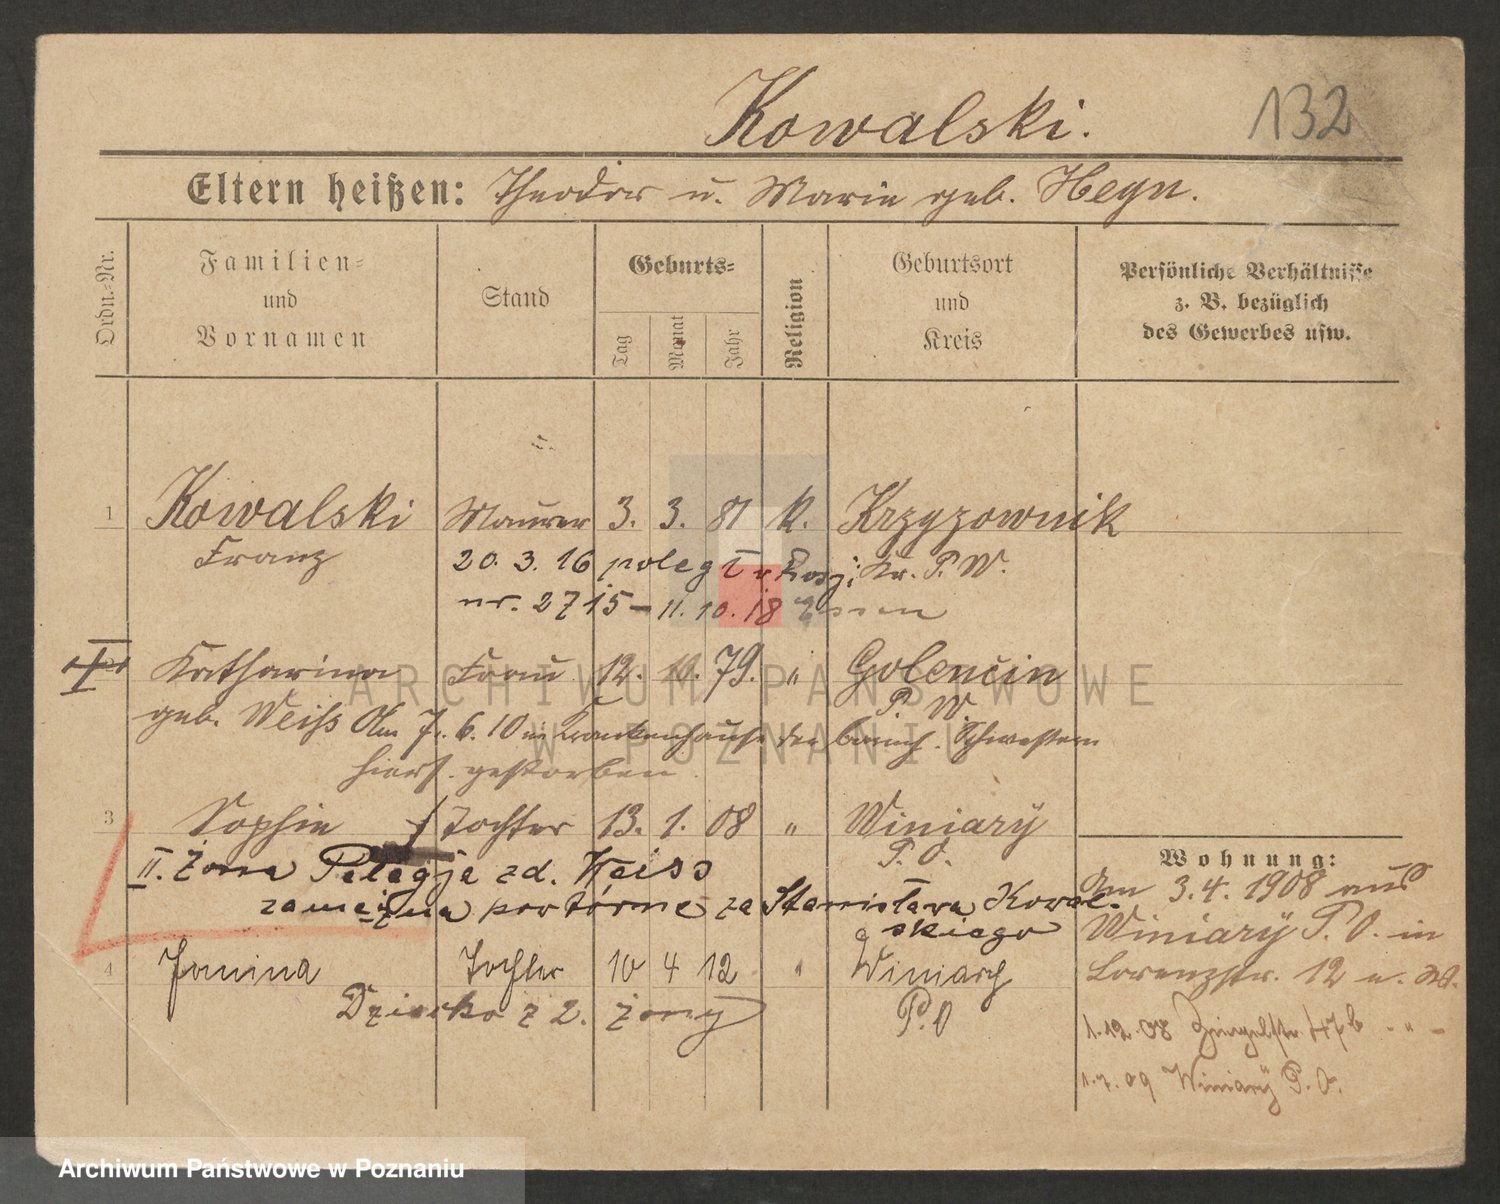 Kowalski.
132
Eltern heißen: Theodor u. Marie geb. Heyn.
Ordn.-Nr.
Familien-
und
Vornamen
Stand
Geburts-
Tag
Monat
Jahr
Religion
Geburtsort
und
Kreis
Persönliche Verhältnisse
z. B. bezüglich
des Gewerbes usw.
1 Kowalski Maurer 3. 3. 81 k. Krzyzownik
Franz
20. 3. 16 poległ v Rosji Kr. P. W.
nr. 2715 – 11. 10. 18
Katharina Frau 12. 10. 79. " Golencin
P. W.
geb. Weiss Am 7. 6. 10 im Krankenhause der barmh. Schwestern
hiers. gestorben
3 Sophie Tochter 13. 1. 08 " Winiary
P. O.
II. żona Pelagja zd. Weiss
zamężna powtórnie za Stanisława Kowal-
skiego
4 Janina Tochter 10 4 12 " Winiary
P. O
Dziecko z 2. żony
Wohnung:
Am 3.4. 1908 aus
Winiary P. O. in
Lorenzstr. 12 u.
1.12.08 47b " –
1.7.09 Winiary P. O.
ARCHIWUM PAŃSTWOWE
W POZNANIU
Archiwum Państwowe w Poznaniu